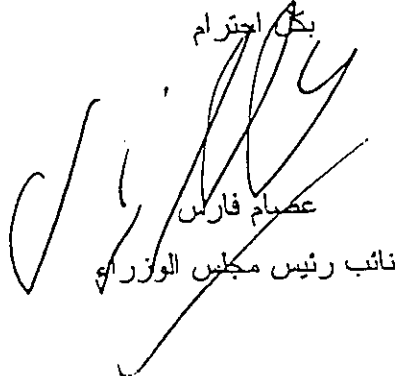 بكل احترام
عصام فارس
نائب رئيس مجلس الوزراء